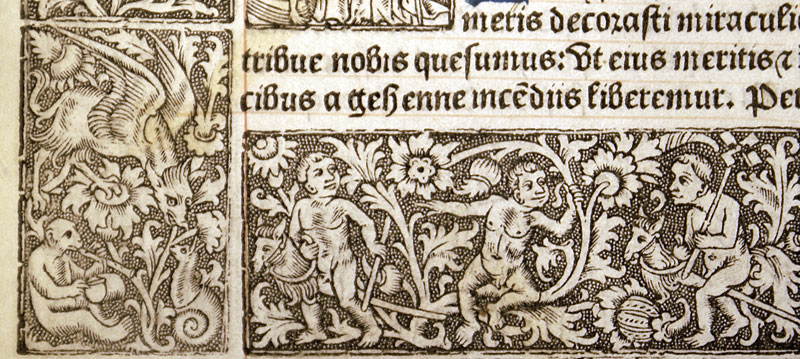 metis decorasti miraculi
tribue nobis quesumus: Ut eius meritis ⁊
cibus a gehenne incēdiis liberemur. Per